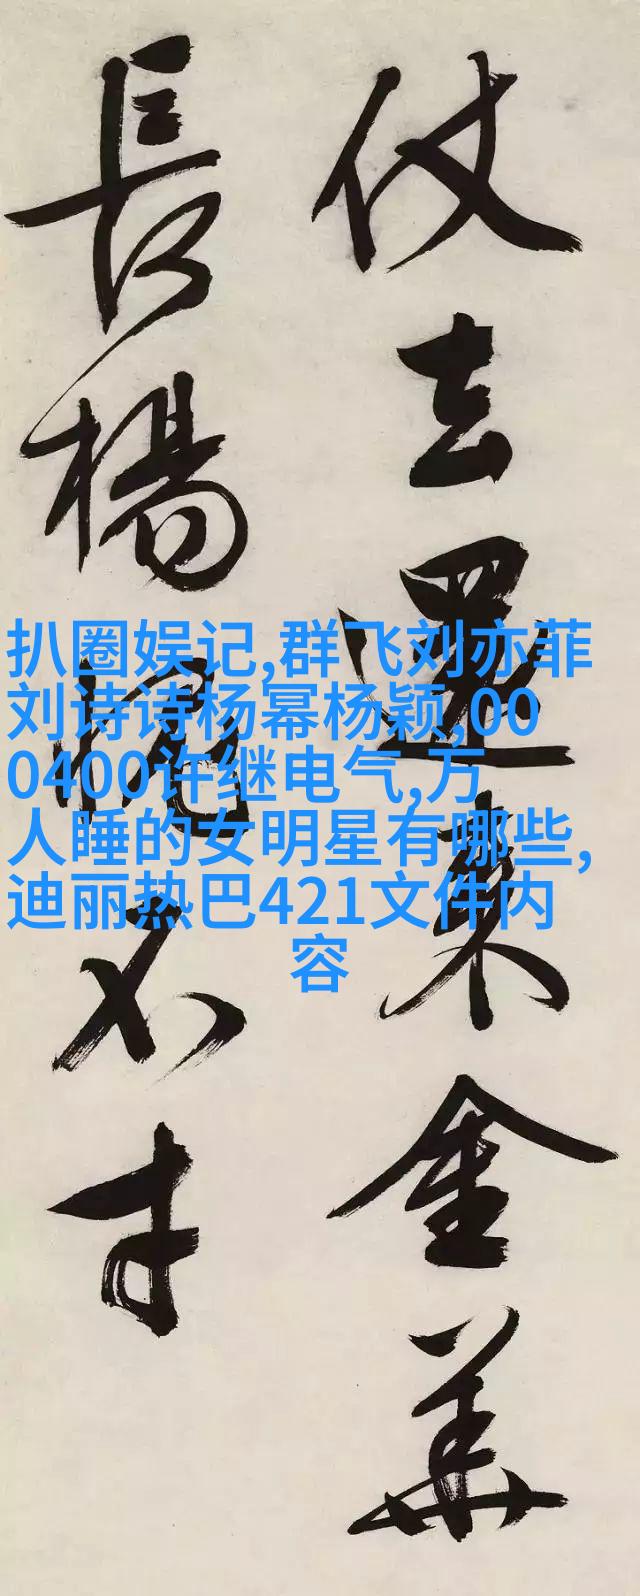 仗去還來金華
長楊愧不才
扒圈娱记,群飞刘亦菲
刘诗诗杨幂杨颖,00
0400许继电气,万
人睡的女明星有哪些,
迪丽热巴421文件内
容